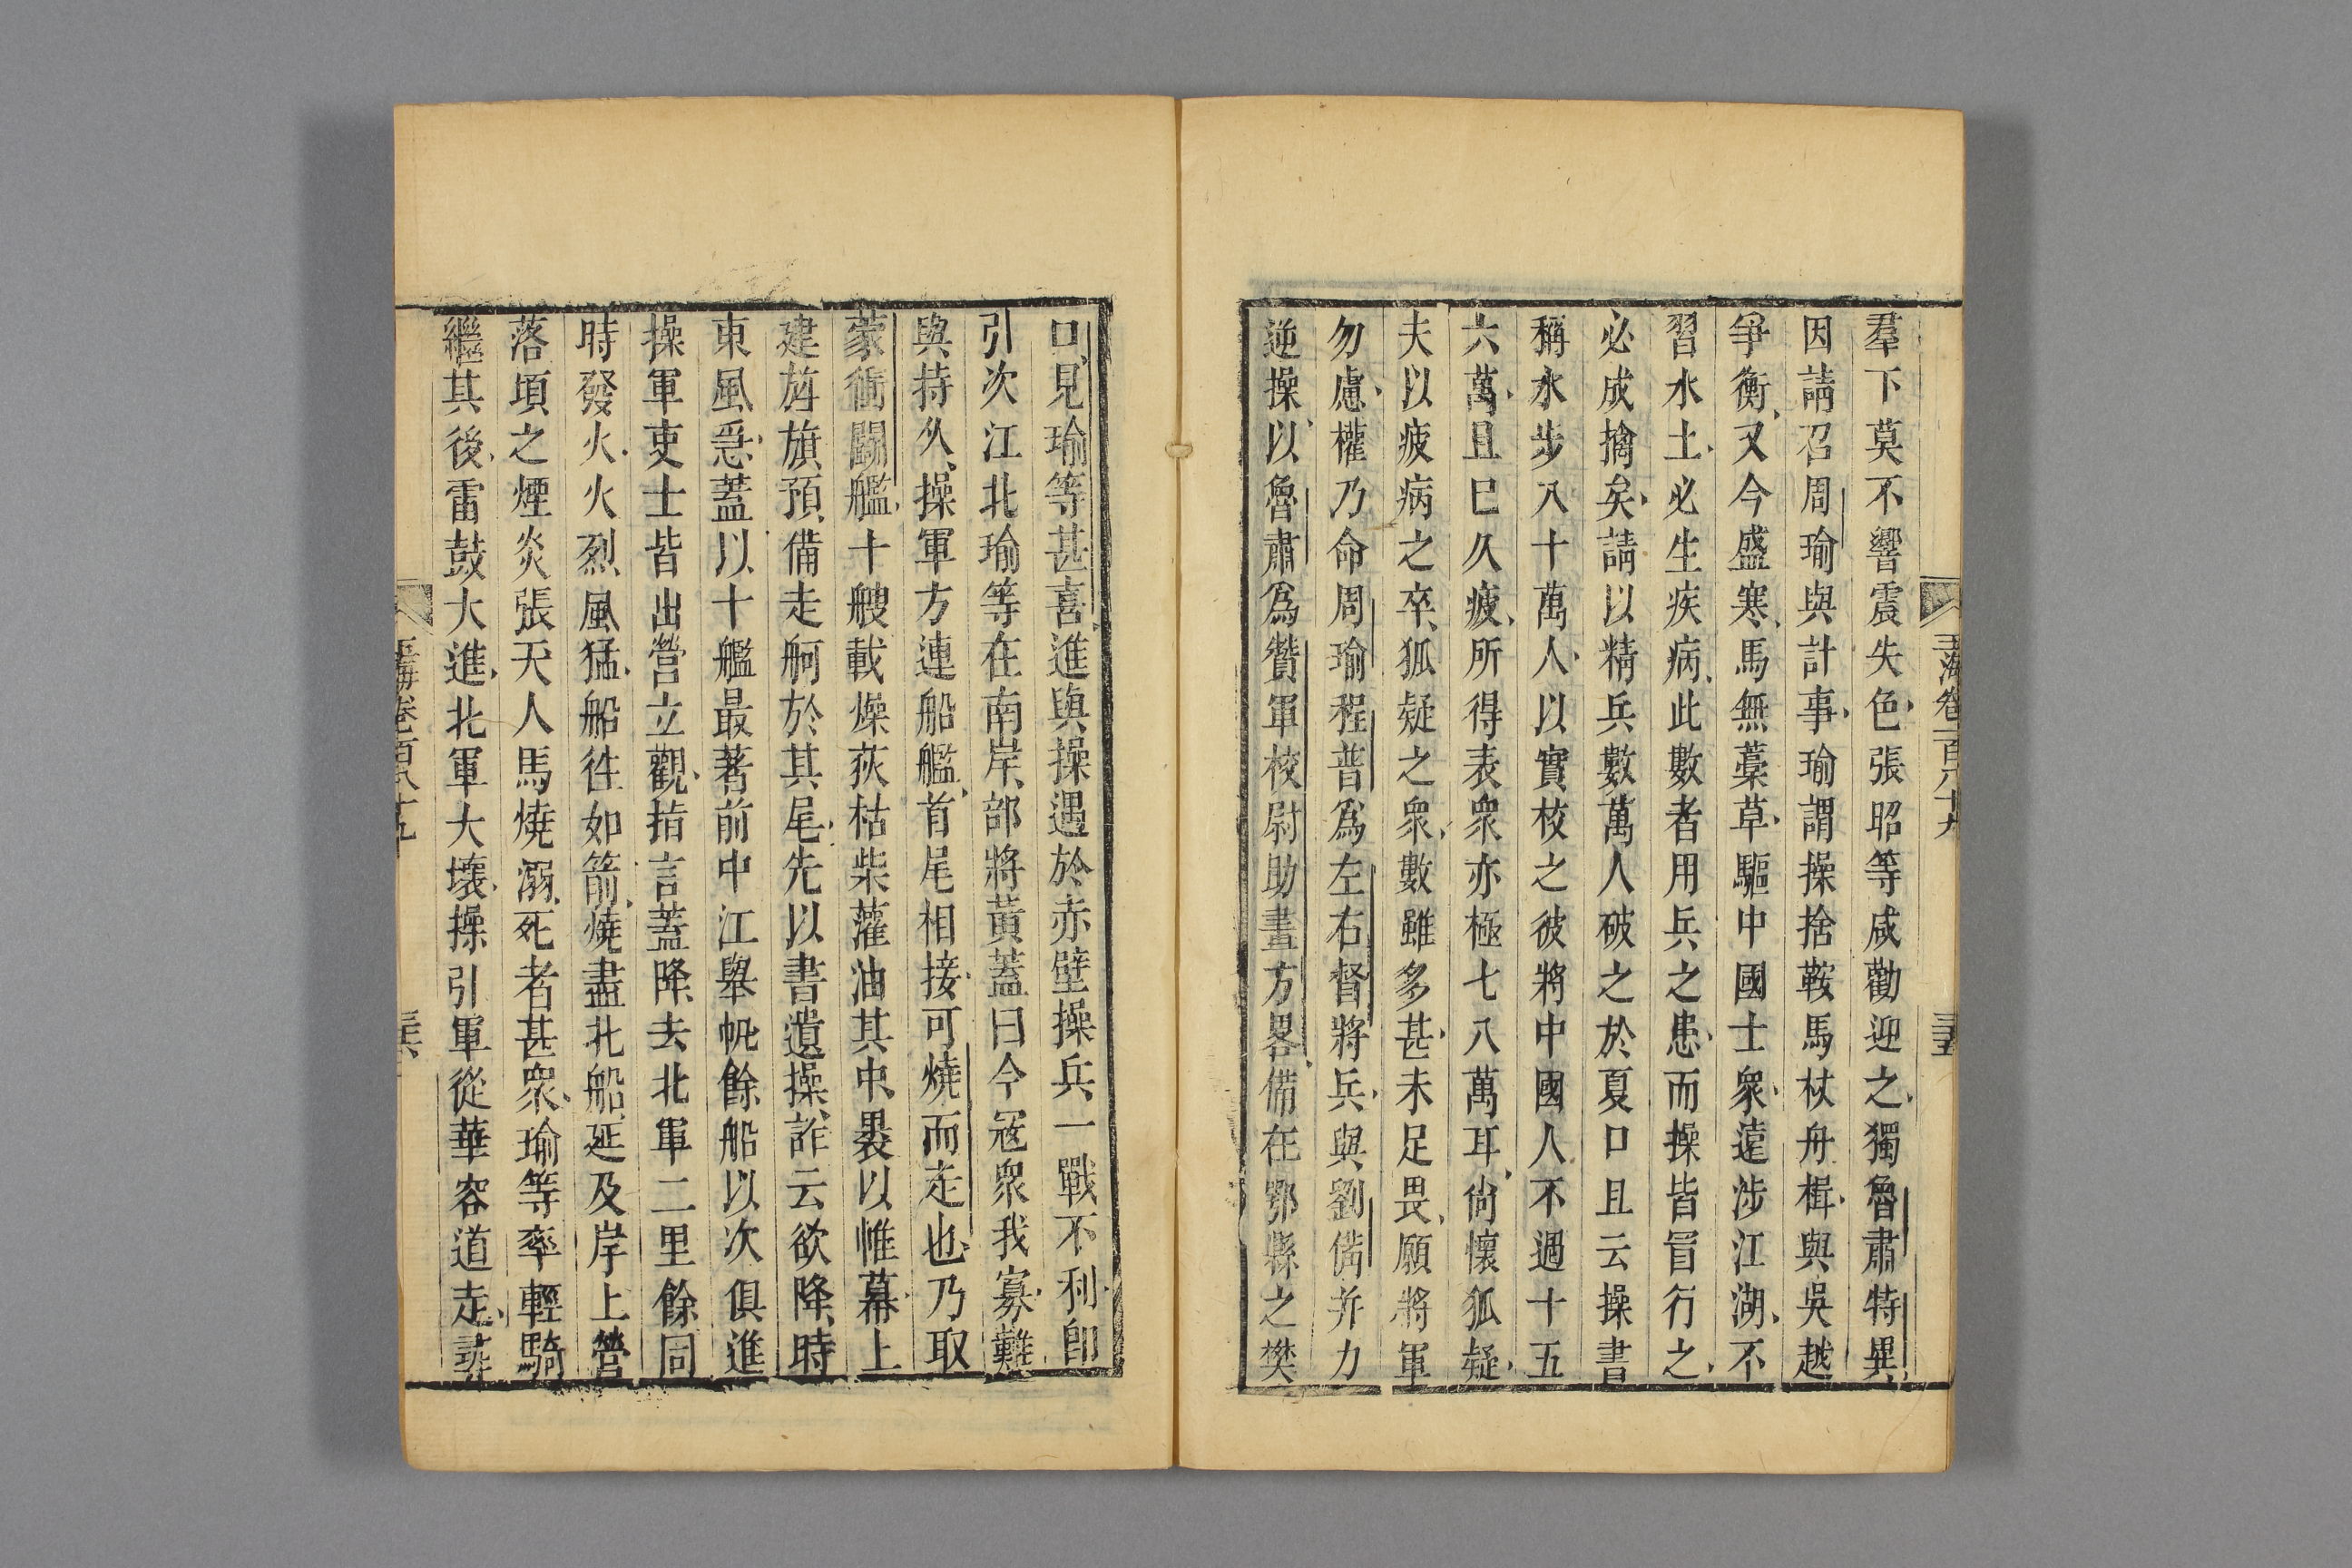 羣下莫不響震失色張昭等咸勸迎之獨魯肅特異
因請召周瑜與計事瑜謂操捨鞍馬杖舟楫與吳越
爭衡又今盛寒馬無藁草驅中國士衆遠涉江湖不
習水土必生疾病此數者用兵之患而操皆冒行之
必成擒矣請以精兵數萬人破之於夏口且云操書
稱水步八十萬人以實校之彼將中國人不過十五
六萬且已久疲所得表衆亦極七八萬耳尙懷狐疑
夫以疲病之卒狐疑之衆數雖多甚未足畏願將軍
勿慮權乃命周瑜程普爲左右督將兵與劉備并力
逆操以魯肅爲贊軍校尉助畫方畧備在鄂縣之樊
口見瑜等甚喜進與操遇於赤壁操兵一戰不利卽
引次江北瑜等在南岸部將黃蓋曰今冦衆我寡難
與持久操軍方連船艦首尾相接可燒而走也乃取
蒙衝鬭艦十艘載燥荻枯柴灌油其中裹以帷幕上
建旌旗預備走舸於其尾先以書遺操詐云欲降時
東風急蓋以十艦最著前中江舉帆餘船以次俱進
操軍吏士皆出營立觀指言蓋降去北軍二里餘同
時發火火烈風猛船徃如箭燒盡北船延及岸上營
落頃之煙炎張天人馬燒溺死者甚衆瑜等率輕騎
繼其後雷鼓大進北軍大壞操引軍從華容道走